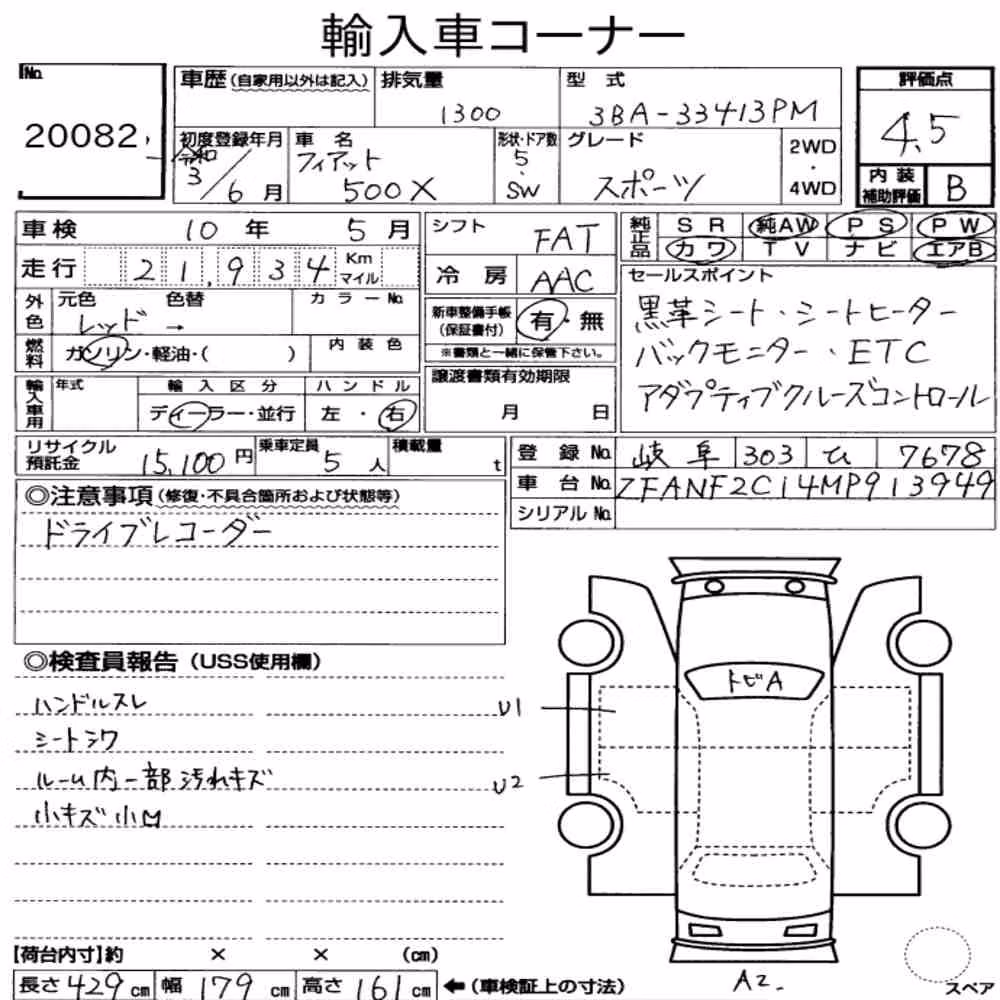 輸入車コーナー
No.
20082
車歴(自家用以外は記入) 排気量 1300
型式 3BA-33413PM
評価点 4.5
初度登録年月 令和 3/6月
車名 フィアット 500X
形状・ドア数 5・SW
グレード スポーツ
2WD・4WD
内装補助評価 B
車検 10年 5月
シフト FAT
純正品 SR 純AW PS PW
カワ TV ナビ エアB
走行 21,934 Km マイル
冷房 AAC
セールスポイント
黒革シート・シートヒーター
バックモニター・ETC
アダプティブクルーズコントロール
外色 元色 色替 カラーNo.
レッド →
新車整備手帳(保証書付) 有・無
※書類と一緒に保管下さい。
燃料 ガソリン・軽油・( ) 内装色
譲渡書類有効期限
月 日
輸入車用 年式 輸入区分 ハンドル
ディーラー・並行 左・右
リサイクル預託金 15,100円 乗車定員 5人 積載量 t
登録No. 岐阜 303 ひ 7678
車台No. ZFANF2C14MP913949
シリアルNo.
◎注意事項(修復・不具合箇所および状態等)
ドライブレコーダー
◎検査員報告(USS使用欄)
ハンドルスレ
シートシワ
ルーム内一部汚れキズ
小キズ小M
トビA
U1
U2
A2.
スペア
【荷台内寸】約 × × (cm)
長さ429cm 幅179cm 高さ161cm ←(車検証上の寸法)